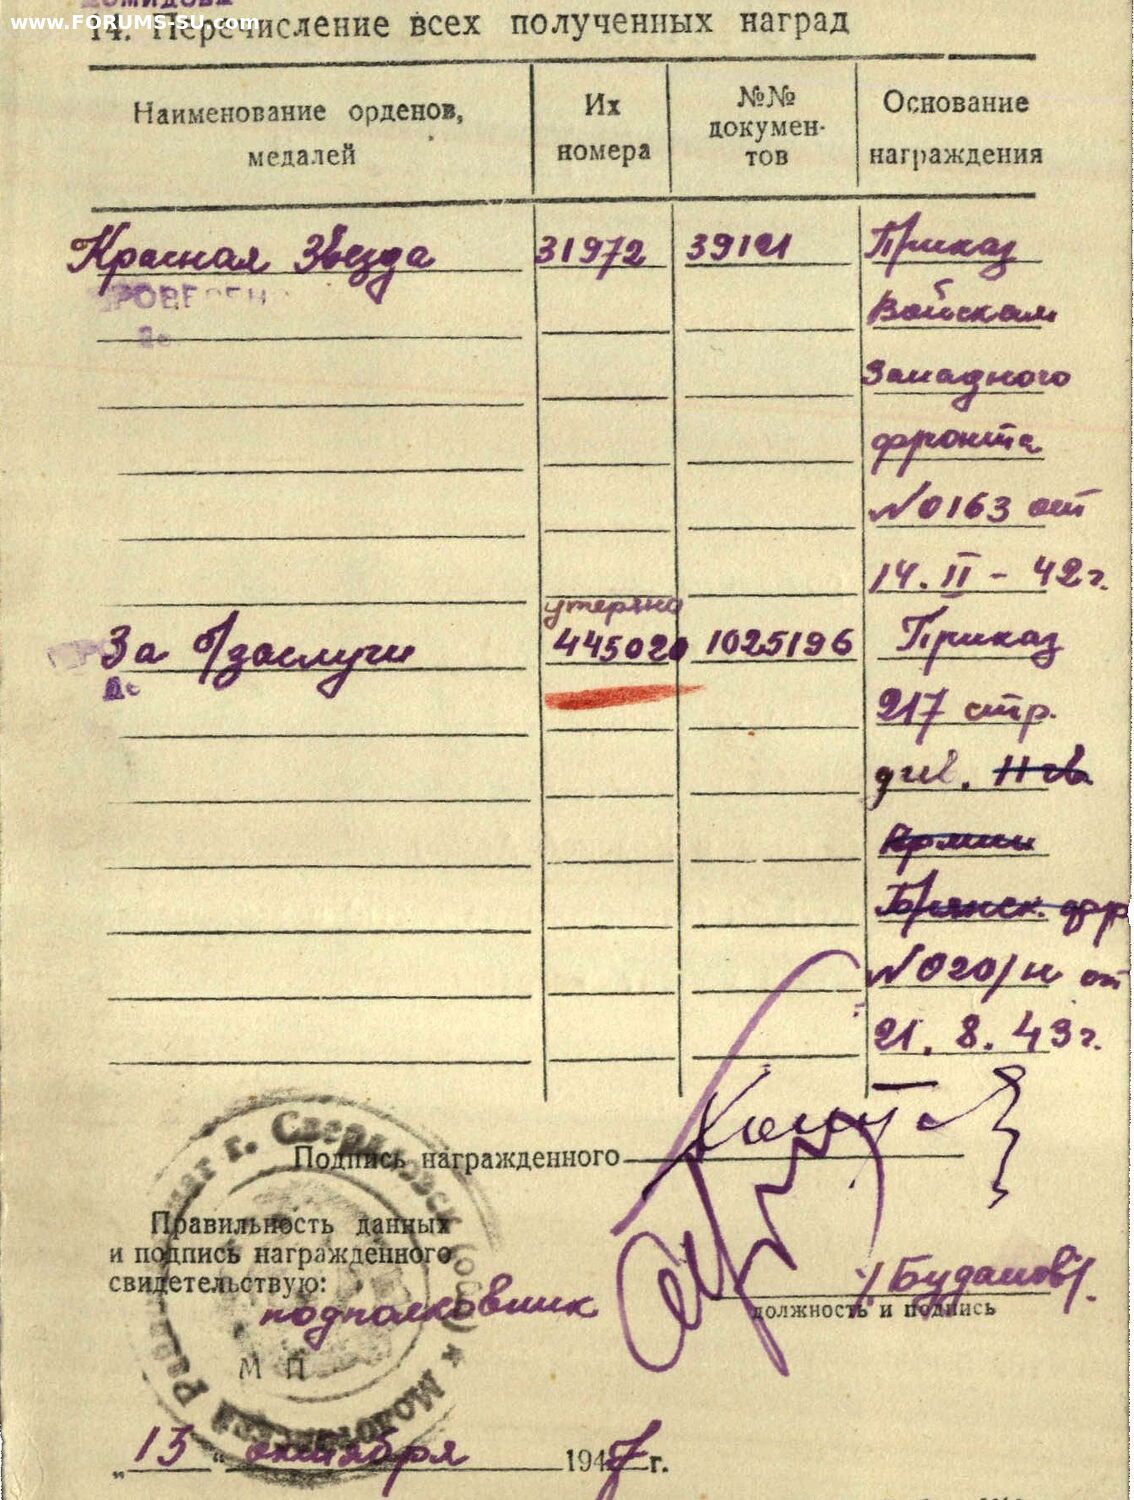 www.FORUMS-SU.com
14. Перечисление всех полученных наград
Наименование орденов, медалей
Их номера
№№ докумен- тов
Основание награждения
Красная Звезда 31972 39121 Приказ
Войскам
Западного
фронта
№ 0163 от
14. II - 42 г.
утеряна
За б/заслуги 445020 1025196 Приказ
217 стр.
див. 11 гв.
Армии
Брянск. фр
№ 020/н от
21. 8. 43 г.
Подпись награжденного
Правильность данных
и подпись награжденного
свидетельствую:
подполковник
/Буданов/.
должность и подпись
М П
„13“ октября 1947 г.